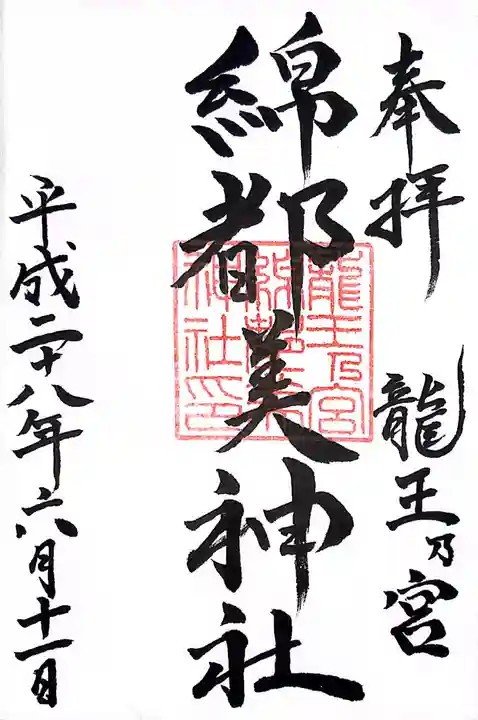 奉拝 龍王乃宮
綿都美神社
龍王乃宮
綿都美
神社印
平成二十八年六月十一日